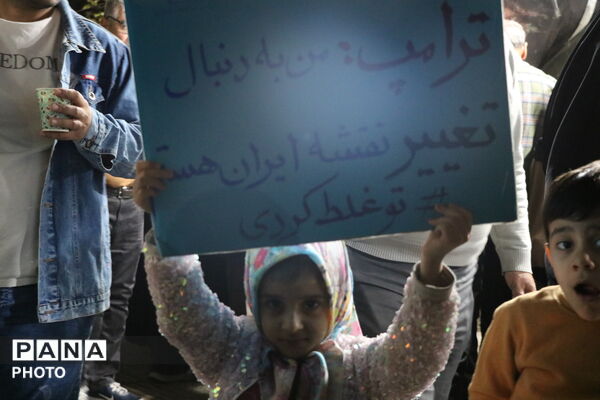 ترامپ: من به دنبال
تغییر نقشه ایران هستم
# تو غلط کردی
EEDOM
PANA
PHOTO